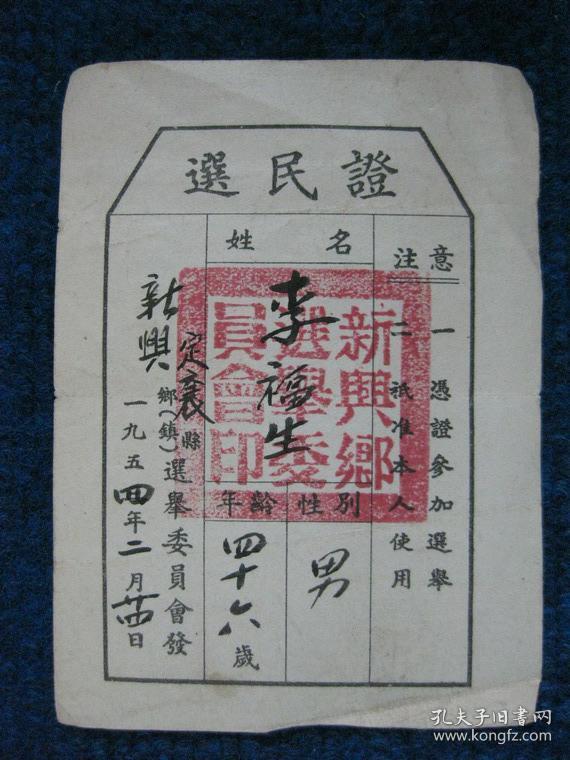 選民證
注意
一 憑證參加選舉
二 祇准本人使用
姓名
李福生
性別
男
年齡
四十六歲
定襄縣
新興鄉(鎮)選舉委員會發
一九五四年二月廿四日
新興鄉
選舉委
員會印
孔夫子旧书网
www.kongfz.com